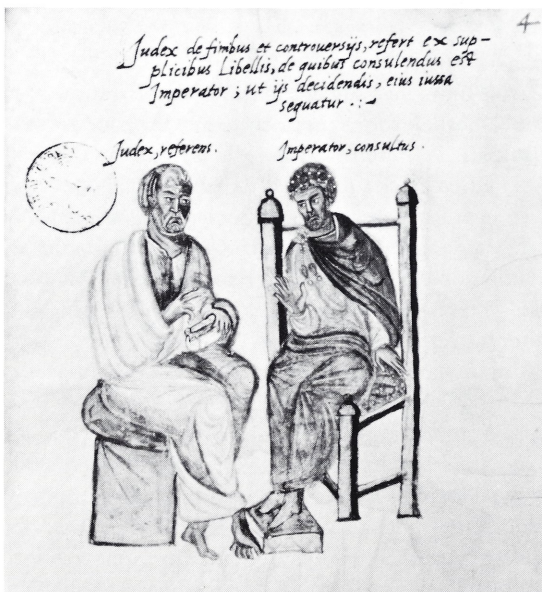 4
Judex de finibus et controuersijs, refert ex sup-
plicibus Libellis, de quibus consulendus est
Imperator; ut ijs decidendis, eius iussa
sequatur.:~
Judex, referens.
Imperator, consultus.